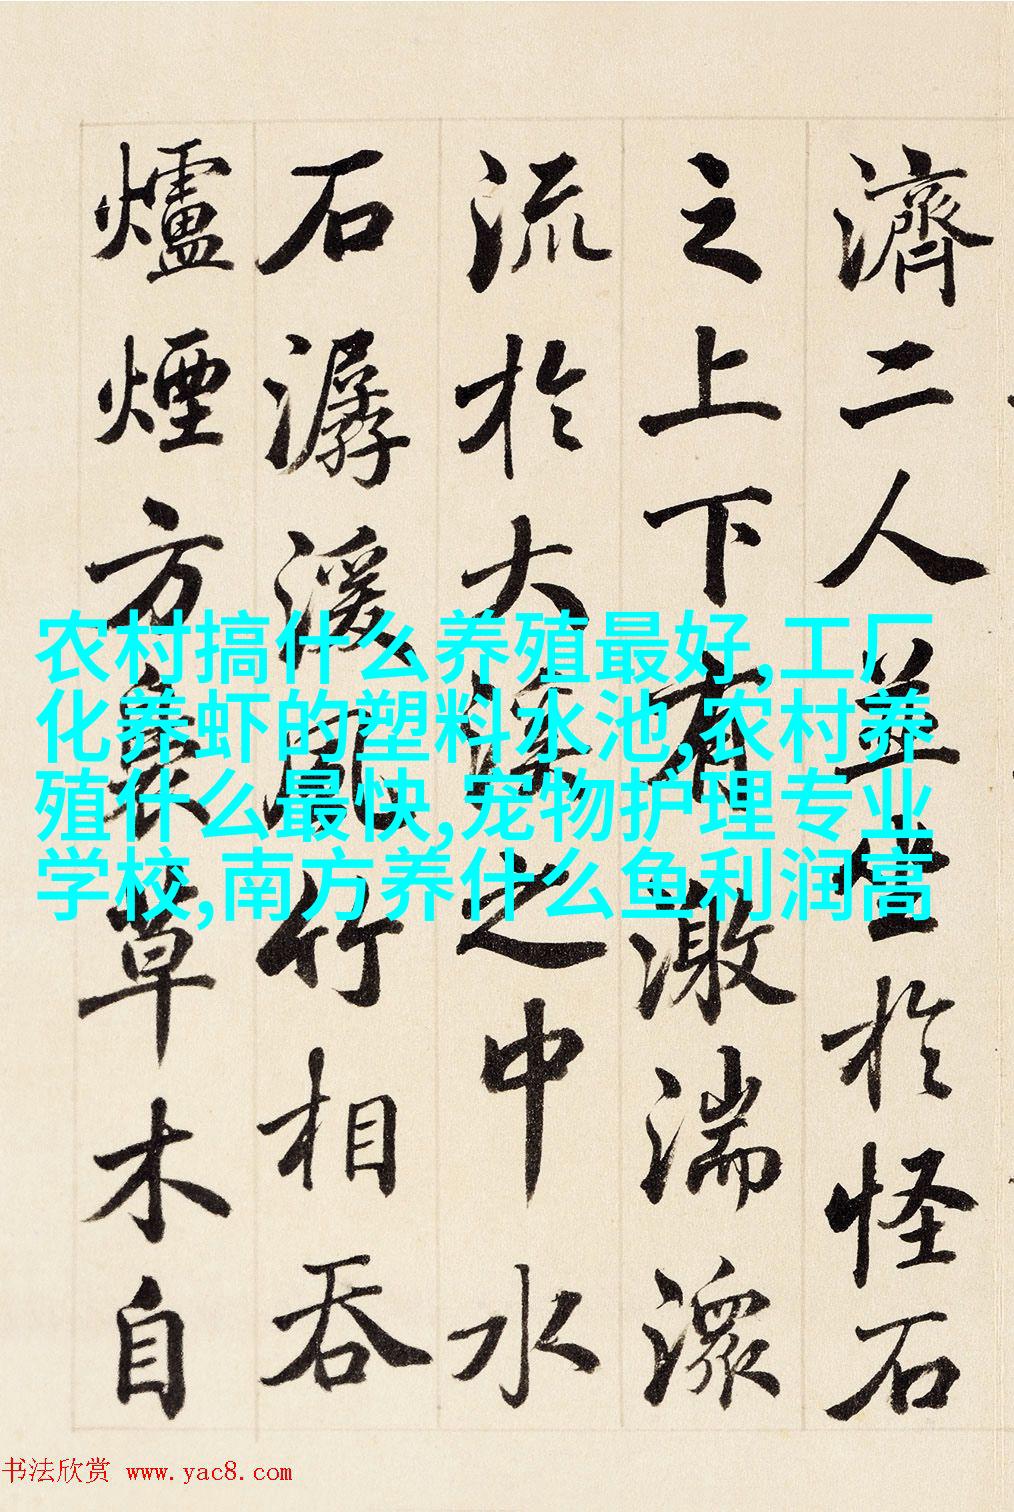 濟二人並坐於怪石
之上下有激湍潨
流於大溪之中水
石潺湲風竹相吞
爐煙方裊草木自
农村搞什么养殖最好,工厂
化养虾的塑料水池,农村养
殖什么最快,宠物护理专业
学校,南方养什么鱼利润高
书法欣赏 www.yac8.com